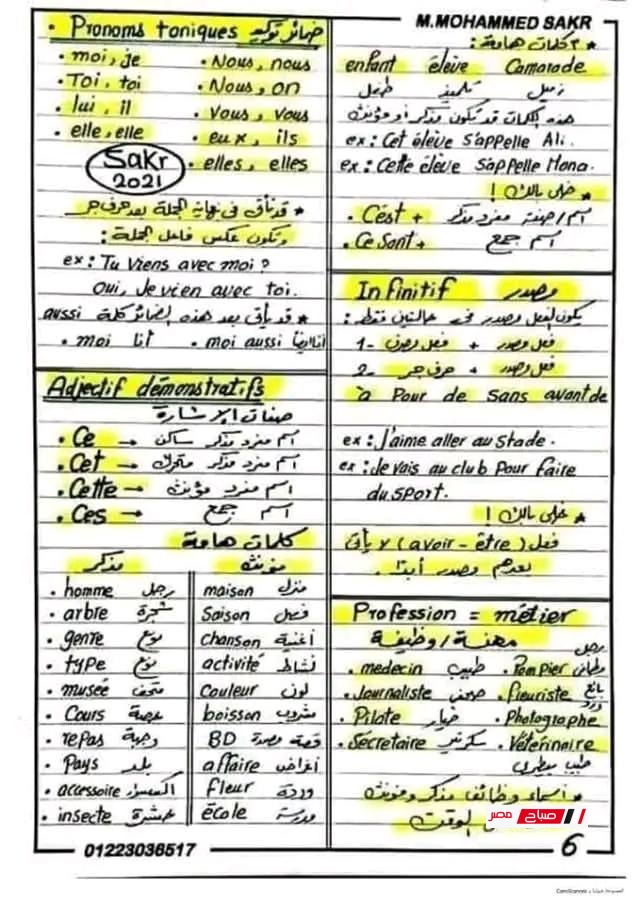 M.MOHAMMED SAKR
• Pronoms toniques ضمائر توكيد
• moi, je • Nous, nous
• Toi, toi • Nous, on
• lui, il • Vous, vous
• elle, elle • eux, ils
• elles, elles
Sakr
2021
★ قد تأتى فى نهاية الجملة بعد حرف جر
وتكون عكس فاعل الجملة :
ex : Tu Viens avec moi ?
oui, Je vien avec toi.
★ قد يأتى بعد هذه الضمائر كلمة aussi
• moi أنا • moi aussi أنا أيضا
Adjectif démonstratifs
صفات الإشارة
• Ce → اسم مفرد مذكر ساكن
• Cet → اسم مفرد مذكر متحرك
• Cette → اسم مفرد مؤنث
• Ces → اسم جمع
كلمات هامة
مذكر مؤنث
• homme رجل maison منزل
• arbre شجرة Saison فصل
• genre نوع chanson أغنية
• type نوع activité نشاط
• musée متحف Couleur لون
• Cours حصة boisson مشروب
• repas وجبة BD قصة مصورة
• Pays بلد affaire أغراض
• accessoire اكسسوار fleur وردة
• insecte حشرة école مدرسة
★ ٣ كلمات هامة :
enfant élève Camarade
طفل تلميذ زميل
هذه الكلمات قد تكون مذكر أو مؤنث
ex : Cet élève s'appelle Ali.
ex : Cette élève s'appelle Mona.
★ خلى بالك !
• C'est + اسم / صفة مفرد مذكر
• Ce Sont + اسم جمع
Infinitif مصدر
يكون الفعل مصدر فى حالتين فقط :
1- فعل مصرف + فعل مصدر
2- حرف جر + فعل مصدر
à Pour de sans avant de
ex : J'aime aller au Stade.
ex : Je vais au club Pour faire
du sport.
★ خلى بالك !
فعل (avoir - être) لا يأتى
بعدهم مصدر أبدًا.
Profession = métier
مهنة / وظيفة
• medecin طبيب • Pompier رجل مطافئ
• Journaliste صحفى • Fleuriste بائع ورد
• Pilote طيار • Photographe
• Secretaire سكرتير • Véterinaire
طبيب بيطرى
★ أسماء وظائف مذكر ومؤنث
الوقت
صباح مصر
01223036517
6
CamScanner